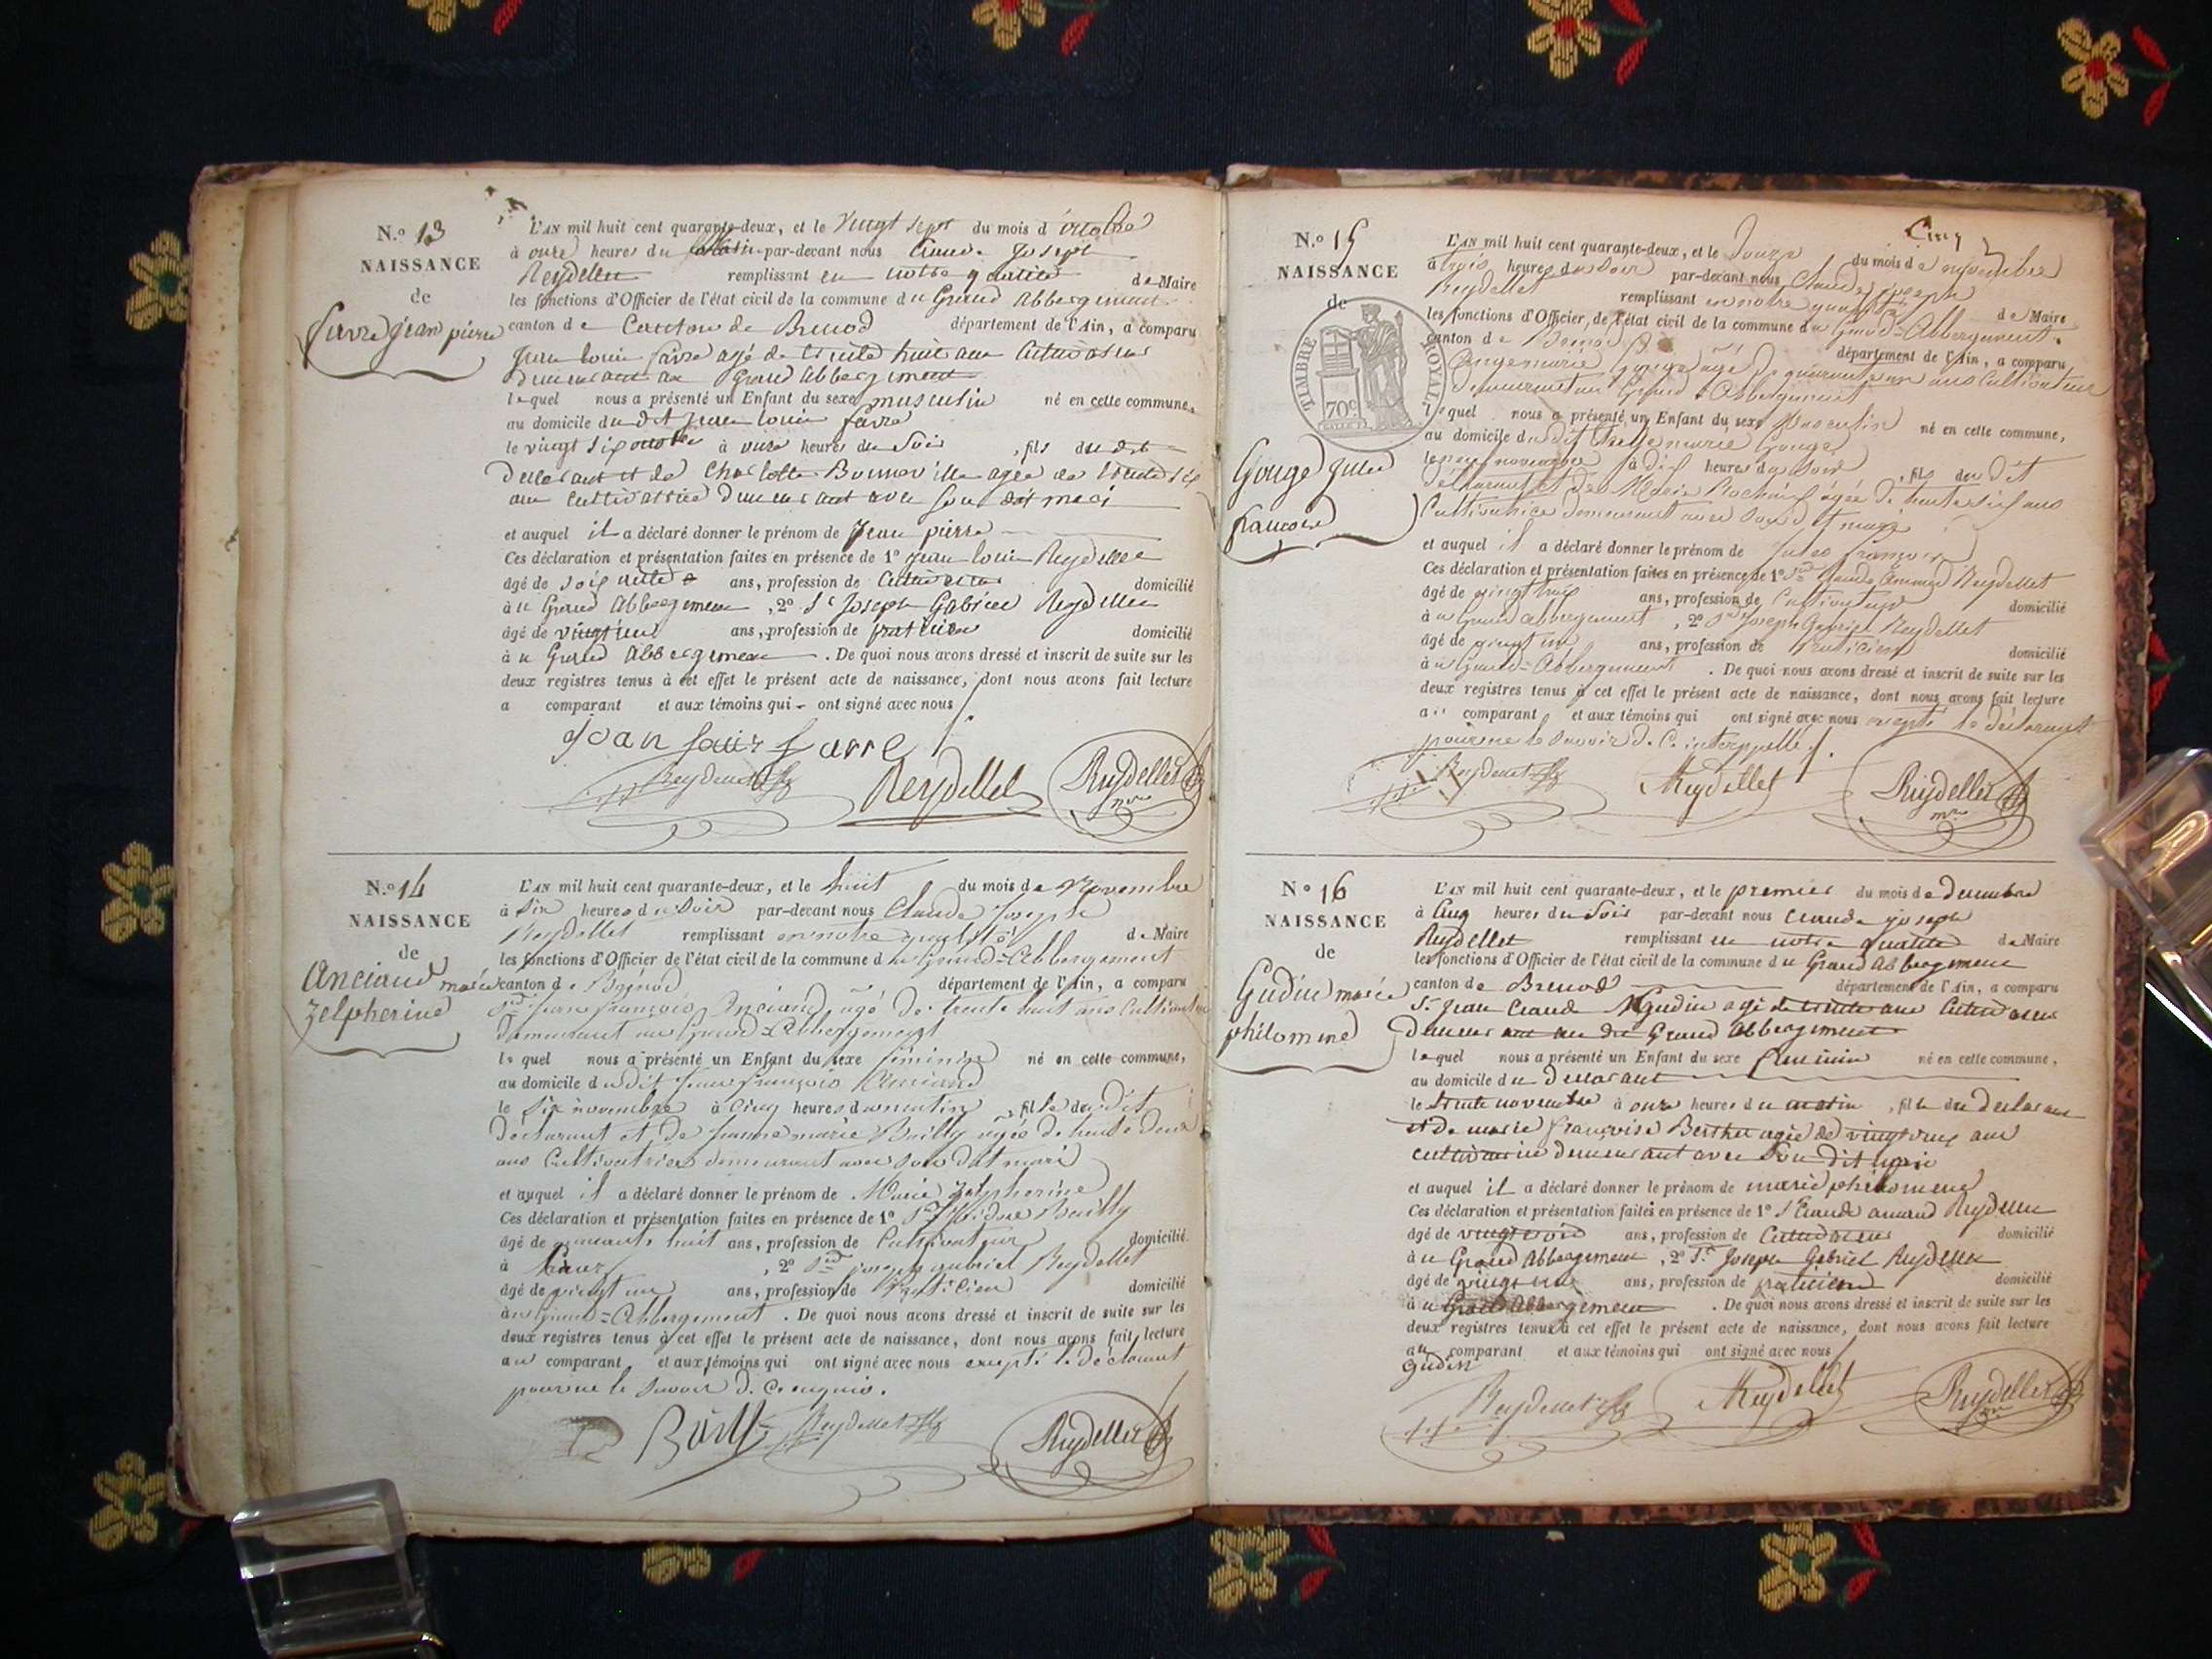 N.° 13
NAISSANCE
de
favre jean pierre
L'AN mil huit cent quarante-deux, et le vingt sept du mois d'octobre
à onze heures du matin par-devant nous Claude Joseph
Reydellet remplissant en notre qualité de Maire
les fonctions d'Officier de l'état civil de la commune du Grand Abbergement
canton de Canton de Brenod département de l'Ain, a comparu
Jean louis favre agé de trente huit ans Cultivateur
demeurant au Grand Abbergement
lequel nous a présenté un Enfant du sexe masculin né en cette commune,
au domicile du dit jean louis favre
le vingt six octobre à onze heures du soir , fils du dit
declarant et de Charlotte Bonneville agée de trente six
ans cultivatrice demeurant avec son dit mari
et auquel il a déclaré donner le prénom de Jean pierre
Ces déclaration et présentation faites en présence de 1° jean louis Reydellet
âgé de ans, profession de Cultivateur domicilié
à u Grand Abbergement , 2° Sr Joseph Gabriel Reydellet
âgé de vingt un ans, profession de praticien domicilié
à u Grand Abbergement . De quoi nous avons dressé et inscrit de suite sur les
deux registres tenus à cet effet le présent acte de naissance, dont nous avons fait lecture
a comparant et aux témoins qui ont signé avec nous
Joan Louis favre
Reydellet Reydellet Reydellet mre
N.° 14
NAISSANCE
de
Anciand marie
Zelpherine
L'AN mil huit cent quarante-deux, et le huit du mois de Novembre
à six heures du soir par-devant nous Claude Joseph
Reydellet remplissant en notre qualité de Maire
les fonctions d'Officier de l'état civil de la commune du Grand-Abbergement
canton de Brénod département de l'Ain, a comparu
jean françois Anciand agé de trente huit ans Cultivateur
demeurant au Grand-Abbergement
le quel nous a présenté un Enfant du sexe féminin né en cette commune,
au domicile du dit jean françois Anciand
le six novembre à cinq heures du matin , fille du dit
déclarant et de jeanne marie Bailly agée de trente deux
ans Cultivatrice demeurant avec son dit mari
et auquel il a déclaré donner le prénom de Marie Zelpherine
Ces déclaration et présentation faites en présence de 1° Bailly
âgé de huit ans, profession de Cultivateur domicilié
à , 2° joseph gabriel Reydellet
âgé de vingt un ans, profession de Praticien domicilié
à u Grand-Abbergement . De quoi nous avons dressé et inscrit de suite sur les
deux registres tenus à cet effet le présent acte de naissance, dont nous avons fait lecture
au comparant et aux témoins qui ont signé avec nous excepté le déclarant
pour ne le savoir d. c. enquis.
Bailly Reydellet Reydellet
Cinq
N.° 15
NAISSANCE
de
TIMBRE ROYAL
70 c
Gouge Jules
françois
L'AN mil huit cent quarante-deux, et le douze du mois de novembre
à trois heures du soir par-devant nous Claude Joseph
Reydellet remplissant en notre qualité de Maire
les fonctions d'Officier de l'état civil de la commune du Grand-Abbergement
canton de Brenod département de l'Ain, a comparu
Gouge agé de quarante un ans Cultivateur
demeurant au Grand Abbergement
lequel nous a présenté un Enfant du sexe masculin né en cette commune,
au domicile du dit marie Gouge
le novembre à dix heures du soir , fils du dit
déclarant et de Marie agée de trente six ans
Cultivatrice demeurant avec son dit mari
et auquel il a déclaré donner le prénom de Jules françois
Ces déclaration et présentation faites en présence de 1° Claude Amand Reydellet
âgé de vingt trois ans, profession de Cultivateur domicilié
à u Grand abbergement , 2° Joseph Gabriel Reydellet
âgé de vingt un ans, profession de Praticien domicilié
à u Grand-Abbergement . De quoi nous avons dressé et inscrit de suite sur les
deux registres tenus à cet effet le présent acte de naissance, dont nous avons fait lecture
au comparant et aux témoins qui ont signé avec nous excepté le déclarant
pour ne le savoir d. c. interppellé.
Reydellet Reydellet Reydellet mre
N° 16
NAISSANCE
de
Gudin marie
philomine
L'AN mil huit cent quarante-deux, et le premier du mois de decembre
à cinq heures du soir par-devant nous Claude joseph
Reydellet remplissant en notre qualité de Maire
les fonctions d'Officier de l'état civil de la commune du Grand Abbergement
canton de Brenod département de l'Ain, a comparu
Sr Jean Claude Gudin agé de trente ans Cultivateur
demeurant au dit Grand Abbergement
lequel nous a présenté un Enfant du sexe feminin né en cette commune,
au domicile du declarant
le trente novembre à onze heures du matin , fille du declarant
et de marie françoise Berthet agée de vingt ans
cultivatrice demeurant avec son dit mari
et auquel il a déclaré donner le prénom de marie philomene
Ces déclaration et présentation faites en présence de 1° Sr Claude amand Reydellet
âgé de vingt trois ans, profession de Cultivateur domicilié
à u Grand Abbergement , 2° Sr Joseph Gabriel Reydellet
âgé de vingt un ans, profession de praticien domicilié
à u Grand Abbergement . De quoi nous avons dressé et inscrit de suite sur les
deux registres tenus à cet effet le présent acte de naissance, dont nous avons fait lecture
au comparant et aux témoins qui ont signé avec nous
gudin
Reydellet Reydellet Reydellet mre